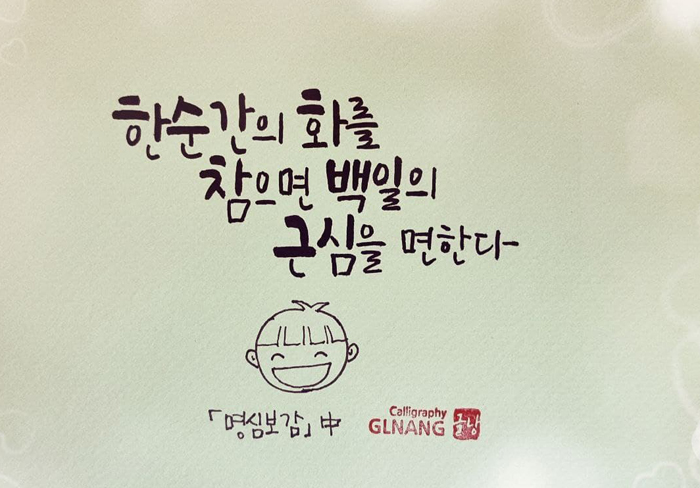 한순간의 화를
참으면 백일의
근심을 면한다
「명심보감」中
Calligraphy
GLNANG 글낭